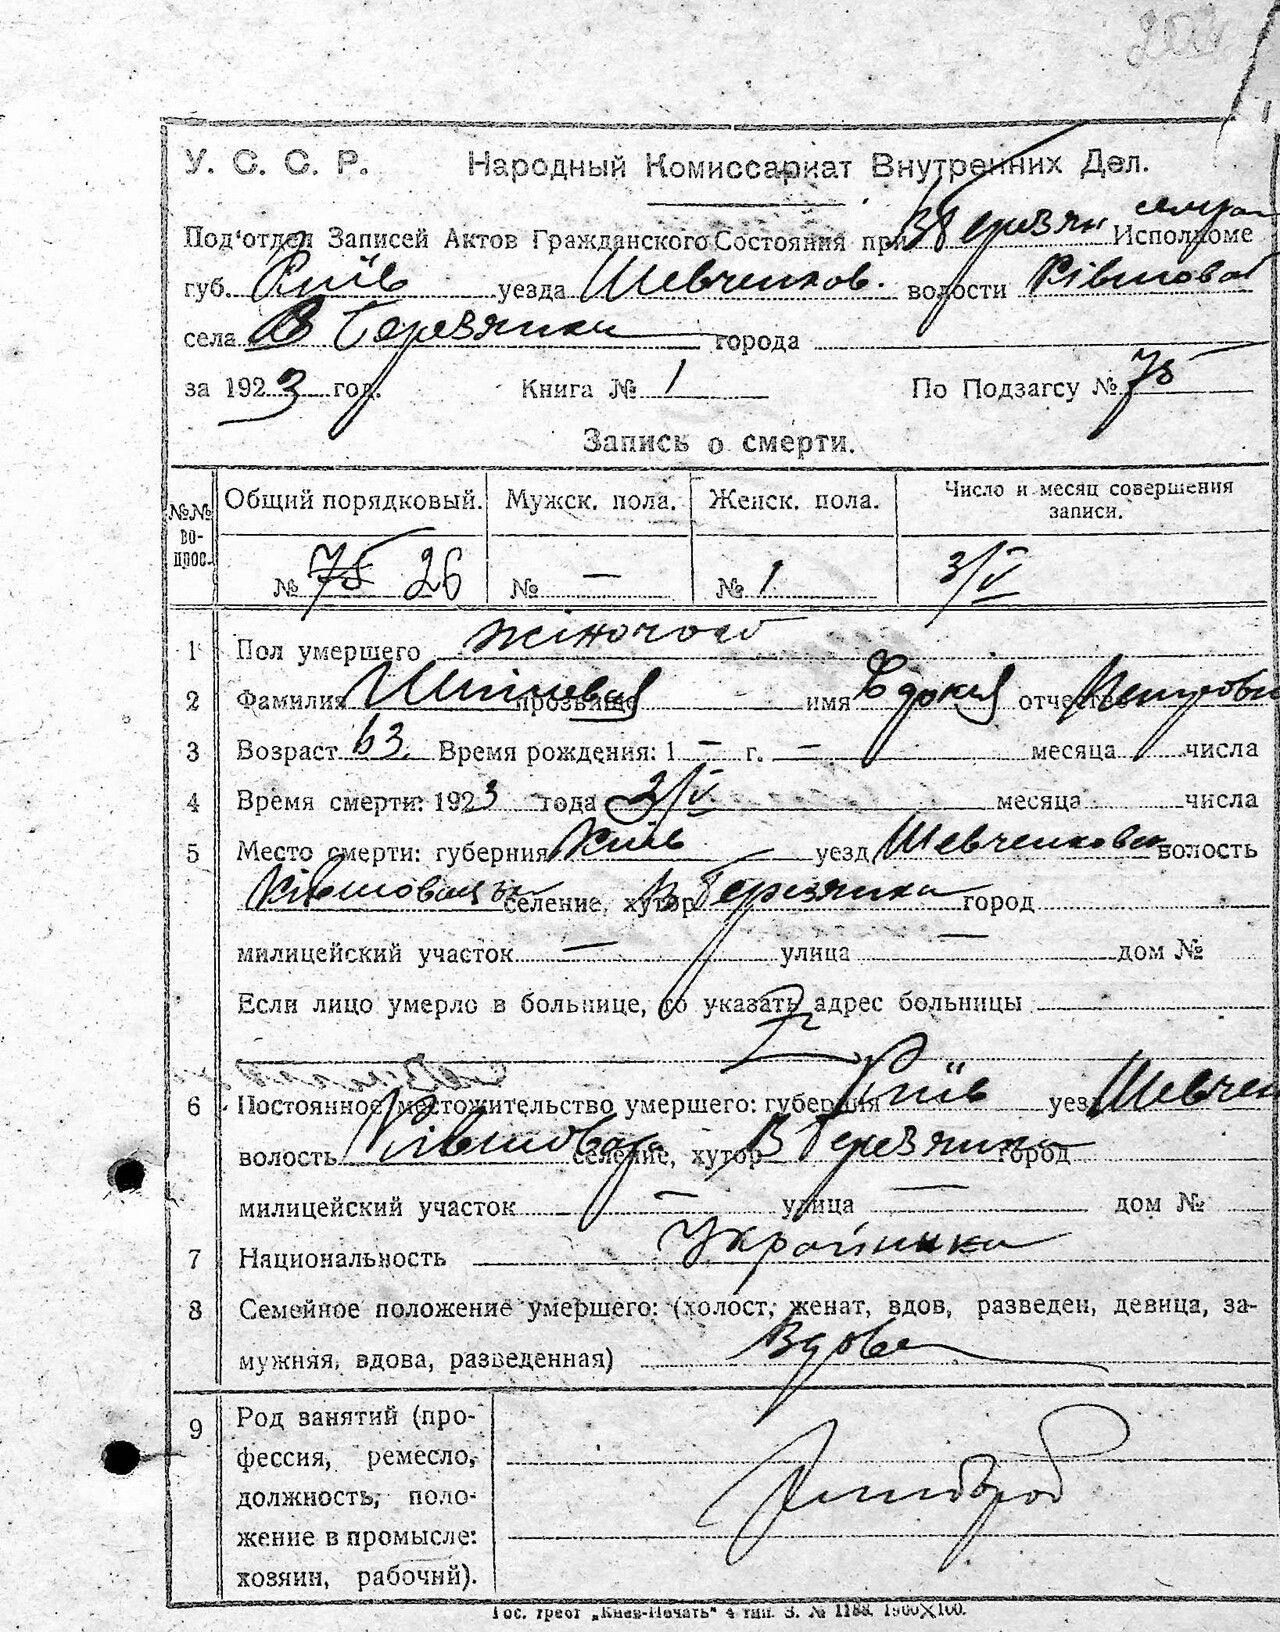 У. С. С. Р. Народный Комиссариат Внутренних Дел.
Под'отдел Записей Актов Гражданского Состояния при В Березян Исполкоме
губ. Київ уезда Шевченков. волости Ківшоват
села В Березянка города
за 1923 год. Книга № 1 По Подзагсу № 75
Запись о смерти.
№№ вопрос. Общий порядковый. Мужск. пола. Женск. пола. Число и месяц совершения записи.
№ 75 26 № — № 1 3/V
1 Пол умершего жіночого
2 Фамилия прозвище имя Євдокія отчество
3 Возраст 63. Время рождения: 1 — г. — месяца числа
4 Время смерти: 1923 года 2/V месяца числа
5 Место смерти: губерния Київ уезд Шевченковск волость
Ківшоватська селение, хутор В Березянка город
милицейский участок — улица — дом №
Если лицо умерло в больнице, то указать адрес больницы
6 Постоянное местожительство умершего: губерния Київ уезд Шевчен
волость Ківшовата селение, хутор В Березянка город
милицейский участок — улица — дом №
7 Национальность Українка
8 Семейное положение умершего: (холост, женат, вдов, разведен, девица, за-
мужняя, вдова, разведенная) Вдова
9 Род занятий (про-
фессия, ремесло,
должность, поло-
жение в промысле:
хозяин, рабочий).
Хлібороб
Гос. трест „Киев-Печать" 4 тип. З. № 1188. 1900×100.